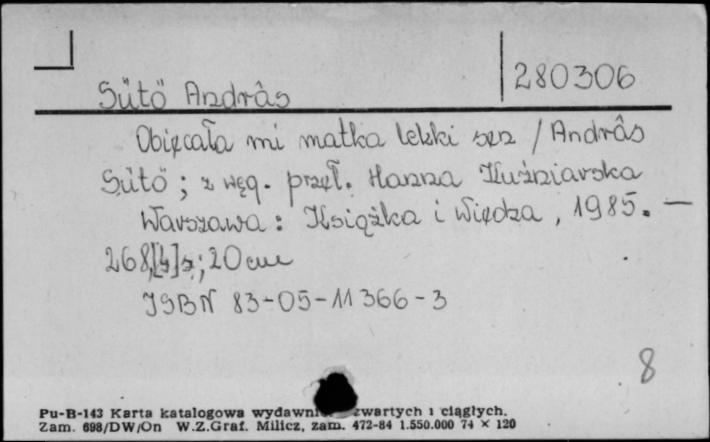 280306
Sütö Andrâs
Obięcała mi matka lekki sen / Andrâs
Sütö ; z węg. przeł. Hanna Kuźniarska
Warszawa : Książka i Wiedza, 1985. —
268,[4]s.; 20 cm
ISBN 83-05-11366-3
8
Pu-B-143 Karta katalogowa zwartych i ciągłych.
Zam. 698/DW/On W.Z.Graf. Milicz, zam. 472-84 1.550.000 74 × 120